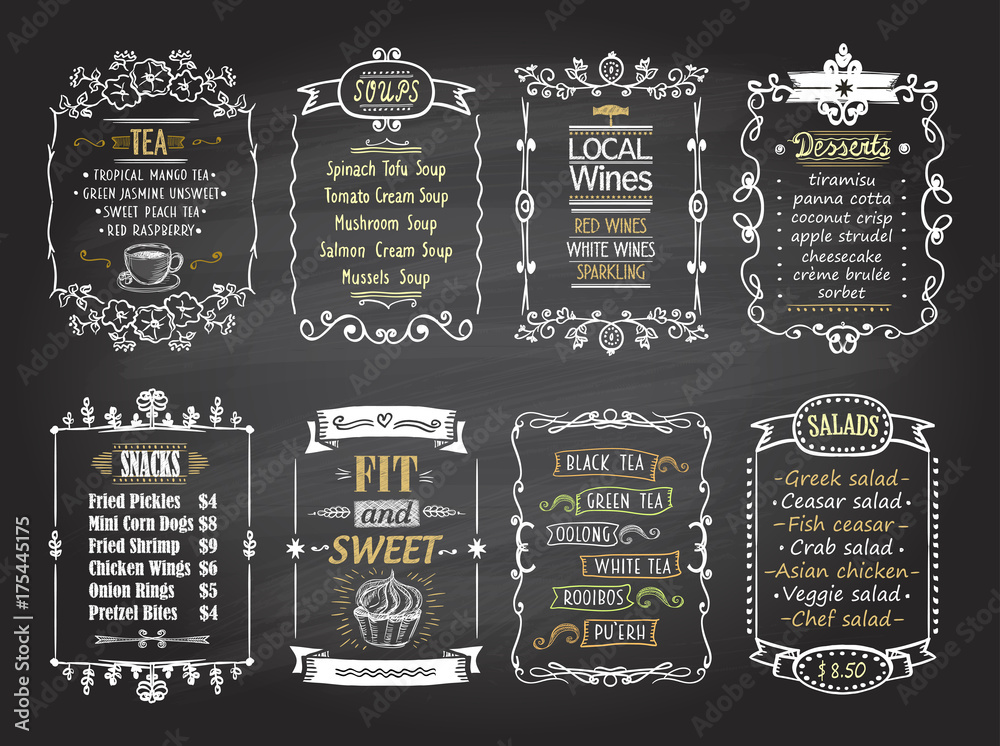 TEA
TROPICAL MANGO TEA
GREEN JASMINE UNSWEET
SWEET PEACH TEA
RED RASPBERRY
SOUPS
Spinach Tofu Soup
Tomato Cream Soup
Mushroom Soup
Salmon Cream Soup
Mussels Soup
LOCAL
Wines
RED WINES
WHITE WINES
SPARKLING
Desserts
tiramisu
panna cotta
coconut crisp
apple strudel
cheesecake
crème brulée
sorbet
SNACKS
Fried Pickles $4
Mini Corn Dogs $8
Fried Shrimp $9
Chicken Wings $6
Onion Rings $5
Pretzel Bites $4
FIT
and
SWEET
BLACK TEA
GREEN TEA
OOLONG
WHITE TEA
ROOIBOS
PU'ERH
SALADS
-Greek salad-
-Ceasar salad-
-Fish ceasar-
-Crab salad-
-Asian chicken-
-Veggie salad-
-Chef salad-
$8.50
Adobe Stock | 175445175